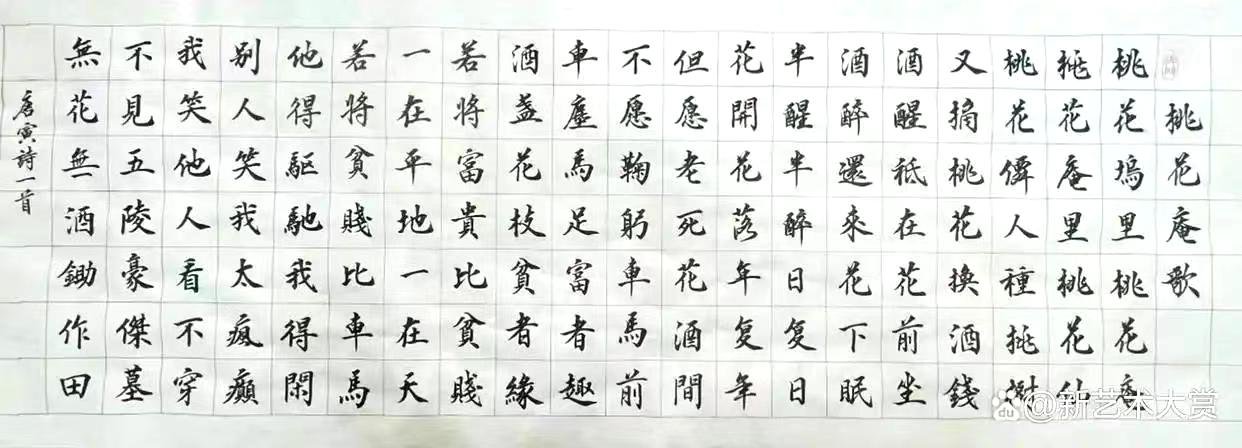 桃花庵歌
桃花塢里桃花庵
桃花庵里桃花仙
桃花僊人種桃樹
又摘桃花換酒錢
酒醒祗在花前坐
酒醉還來花下眠
半醒半醉日复日
花開花落年复年
但愿老死花酒間
不愿鞠躬車馬前
車塵馬足富者趣
酒盞花枝貧者緣
若將富貴比貧賤
一在平地一在天
若將貧賤比車馬
他得驅馳我得閑
别人笑我太瘋癲
我笑他人看不穿
不見五陵豪傑墓
無花無酒鋤作田
唐寅詩一首
@新艺术大赏